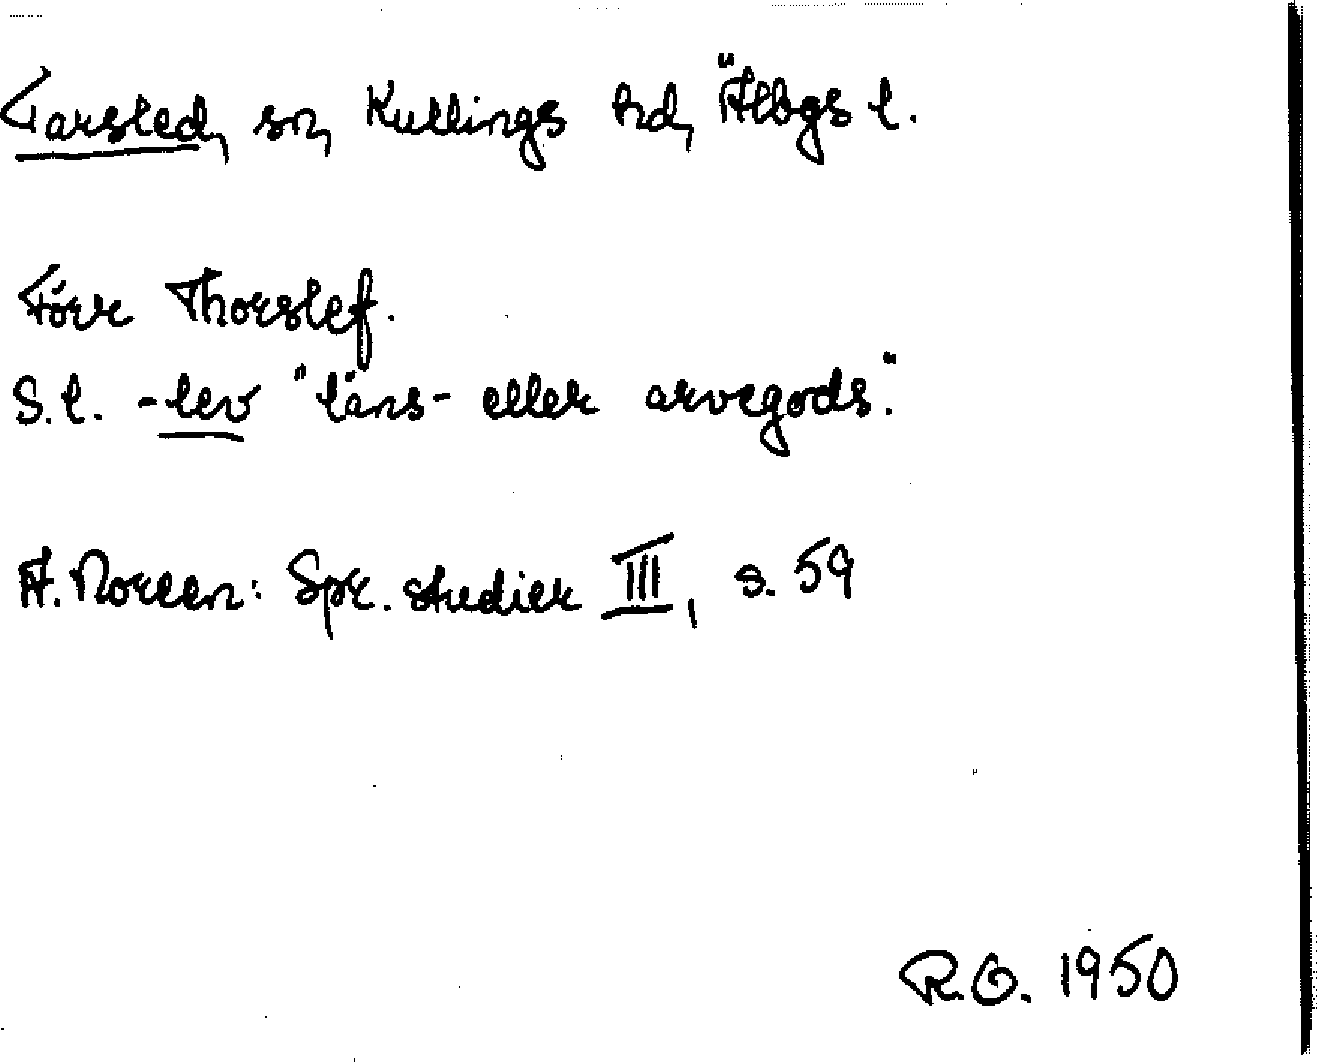 Tarsled, sn, Kullings hd, Älbgs l.
Förr Thorslef.
S.l. -lev "läns- eller arvegods."
A. Noreen: Spr. studier III, s. 59
R.O. 1950